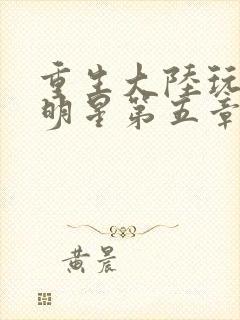 重生大陸玩
明星第五章
黄晨